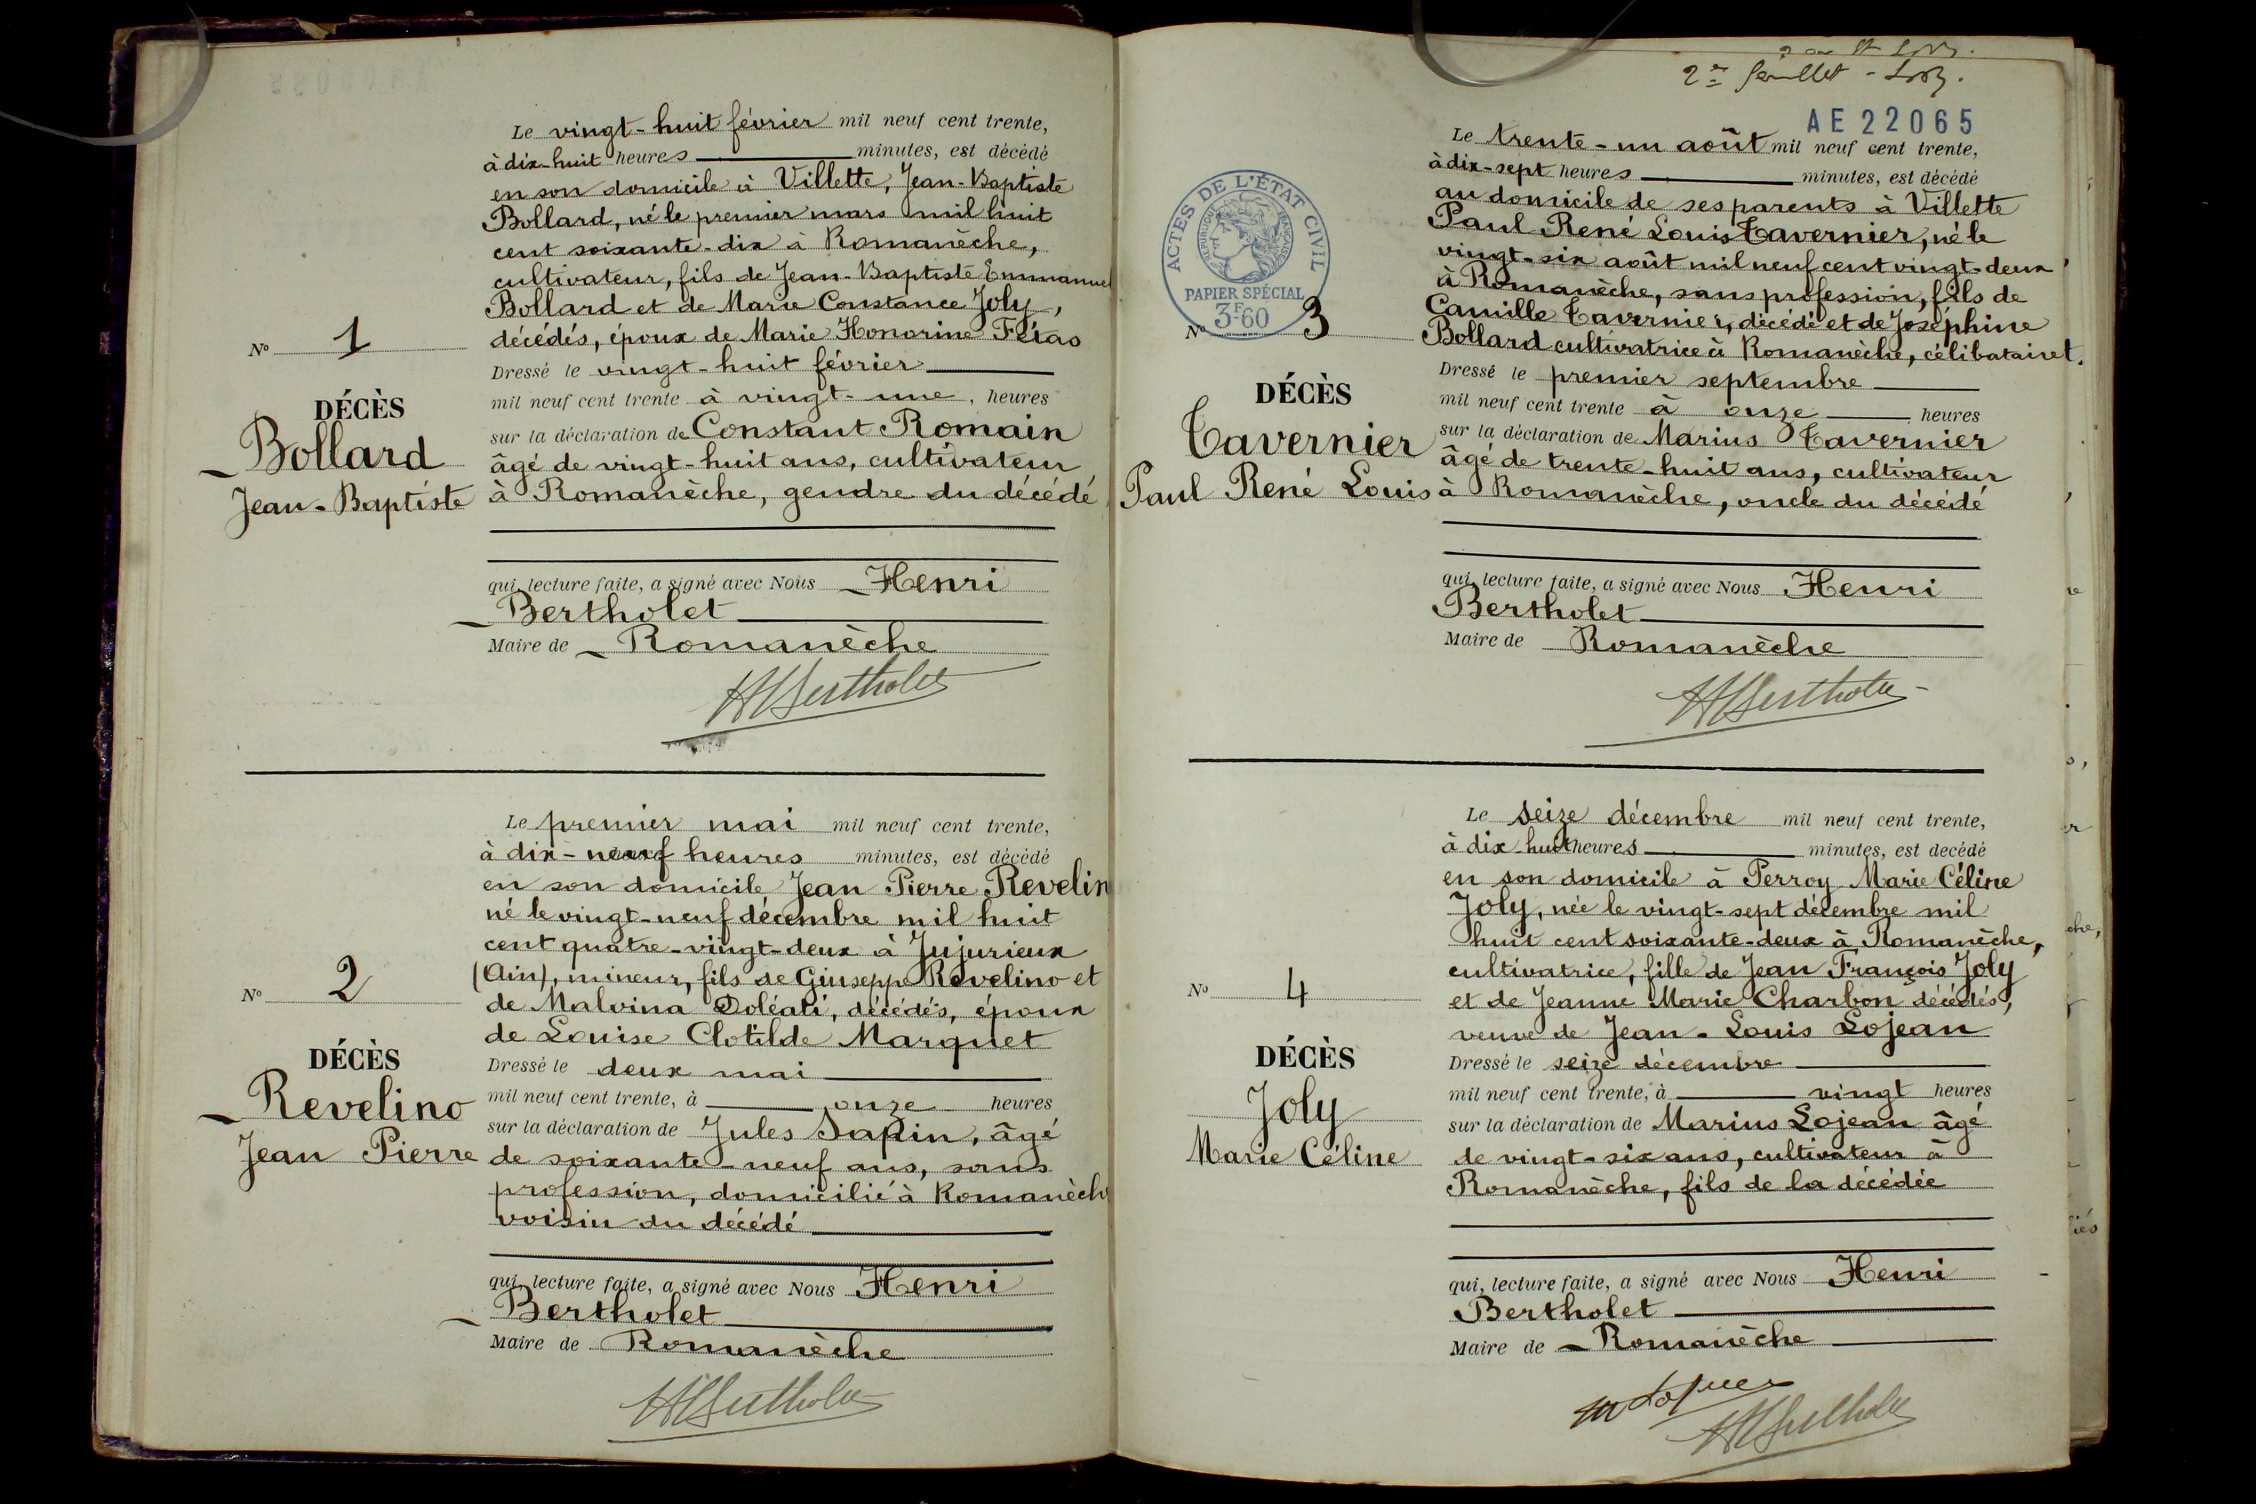 Le vingt-huit février mil neuf cent trente,
à dix-huit heures minutes, est décédé
en son domicile à Villette, Jean-Baptiste
Bollard, né le premier mars mil huit
cent soixante-dix à Romanèche,
cultivateur, fils de Jean-Baptiste Emmanuel
Bollard et de Marie Constance Joly,
décédés, époux de Marie Honorine Fétas
Nº 1
Dressé le vingt-huit février
mil neuf cent trente à vingt-une, heures
DÉCÈS
Bollard
Jean-Baptiste
sur la déclaration de Constant Romain
âgé de vingt-huit ans, cultivateur
à Romanèche, gendre du décédé
qui, lecture faite, a signé avec Nous Henri
Bertholet
Maire de Romanèche
HBertholet
Le premier mai mil neuf cent trente,
à dix-neuf heures minutes, est décédé
en son domicile Jean Pierre Revelin
né le vingt-neuf décembre mil huit
cent quatre-vingt-deux à Jujurieux
(Ain), mineur, fils de Giuseppe Revelino et
de Malvina Doléati, décédés, époux
de Louise Clotilde Marquet
Nº 2
DÉCÈS
Revelino
Jean Pierre
Dressé le deux mai
mil neuf cent trente, à onze heures
sur la déclaration de Jules Sapin, âgé
de soixante-neuf ans, sans
profession, domicilié à Romanèch
voisin du décédé
qui, lecture faite, a signé avec Nous Henri
Bertholet
Maire de Romanèche
HBertholet
2e feuillet
AE 22065
ACTES DE L'ÉTAT CIVIL
RÉPUBLIQUE FRANÇAISE
PAPIER SPÉCIAL
3F60
Le trente-un août mil neuf cent trente,
à dix-sept heures minutes, est décédé
au domicile de ses parents à Villette
Paul René Louis Tavernier, né le
vingt-six août mil neuf cent vingt-deux
à Romanèche, sans profession, fils de
Camille Tavernier, décédé et de Joséphine
Bollard cultivatrice à Romanèche, célibataire.
Nº 3
DÉCÈS
Tavernier
Paul René Louis
Dressé le premier septembre
mil neuf cent trente à onze heures
sur la déclaration de Marius Tavernier
âgé de trente-huit ans, cultivateur
à Romanèche, oncle du décédé
qui, lecture faite, a signé avec Nous Henri
Bertholet
Maire de Romanèche
HBertholet
Le seize décembre mil neuf cent trente,
à dix-huit heures minutes, est decédé
en son domicile à Perroy Marie Céline
Joly, née le vingt-sept décembre mil
huit cent soixante-deux à Romanèche,
cultivatrice, fille de Jean François Joly
et de Jeanne Marie Charbon décédés,
veuve de Jean-Louis Lojean
Nº 4
DÉCÈS
Joly
Marie Céline
Dressé le seize décembre
mil neuf cent trente, à vingt heures
sur la déclaration de Marius Lojean âgé
de vingt-six ans, cultivateur à
Romanèche, fils de la décédée
qui, lecture faite, a signé avec Nous Henri
Bertholet
Maire de Romanèche
HBertholet